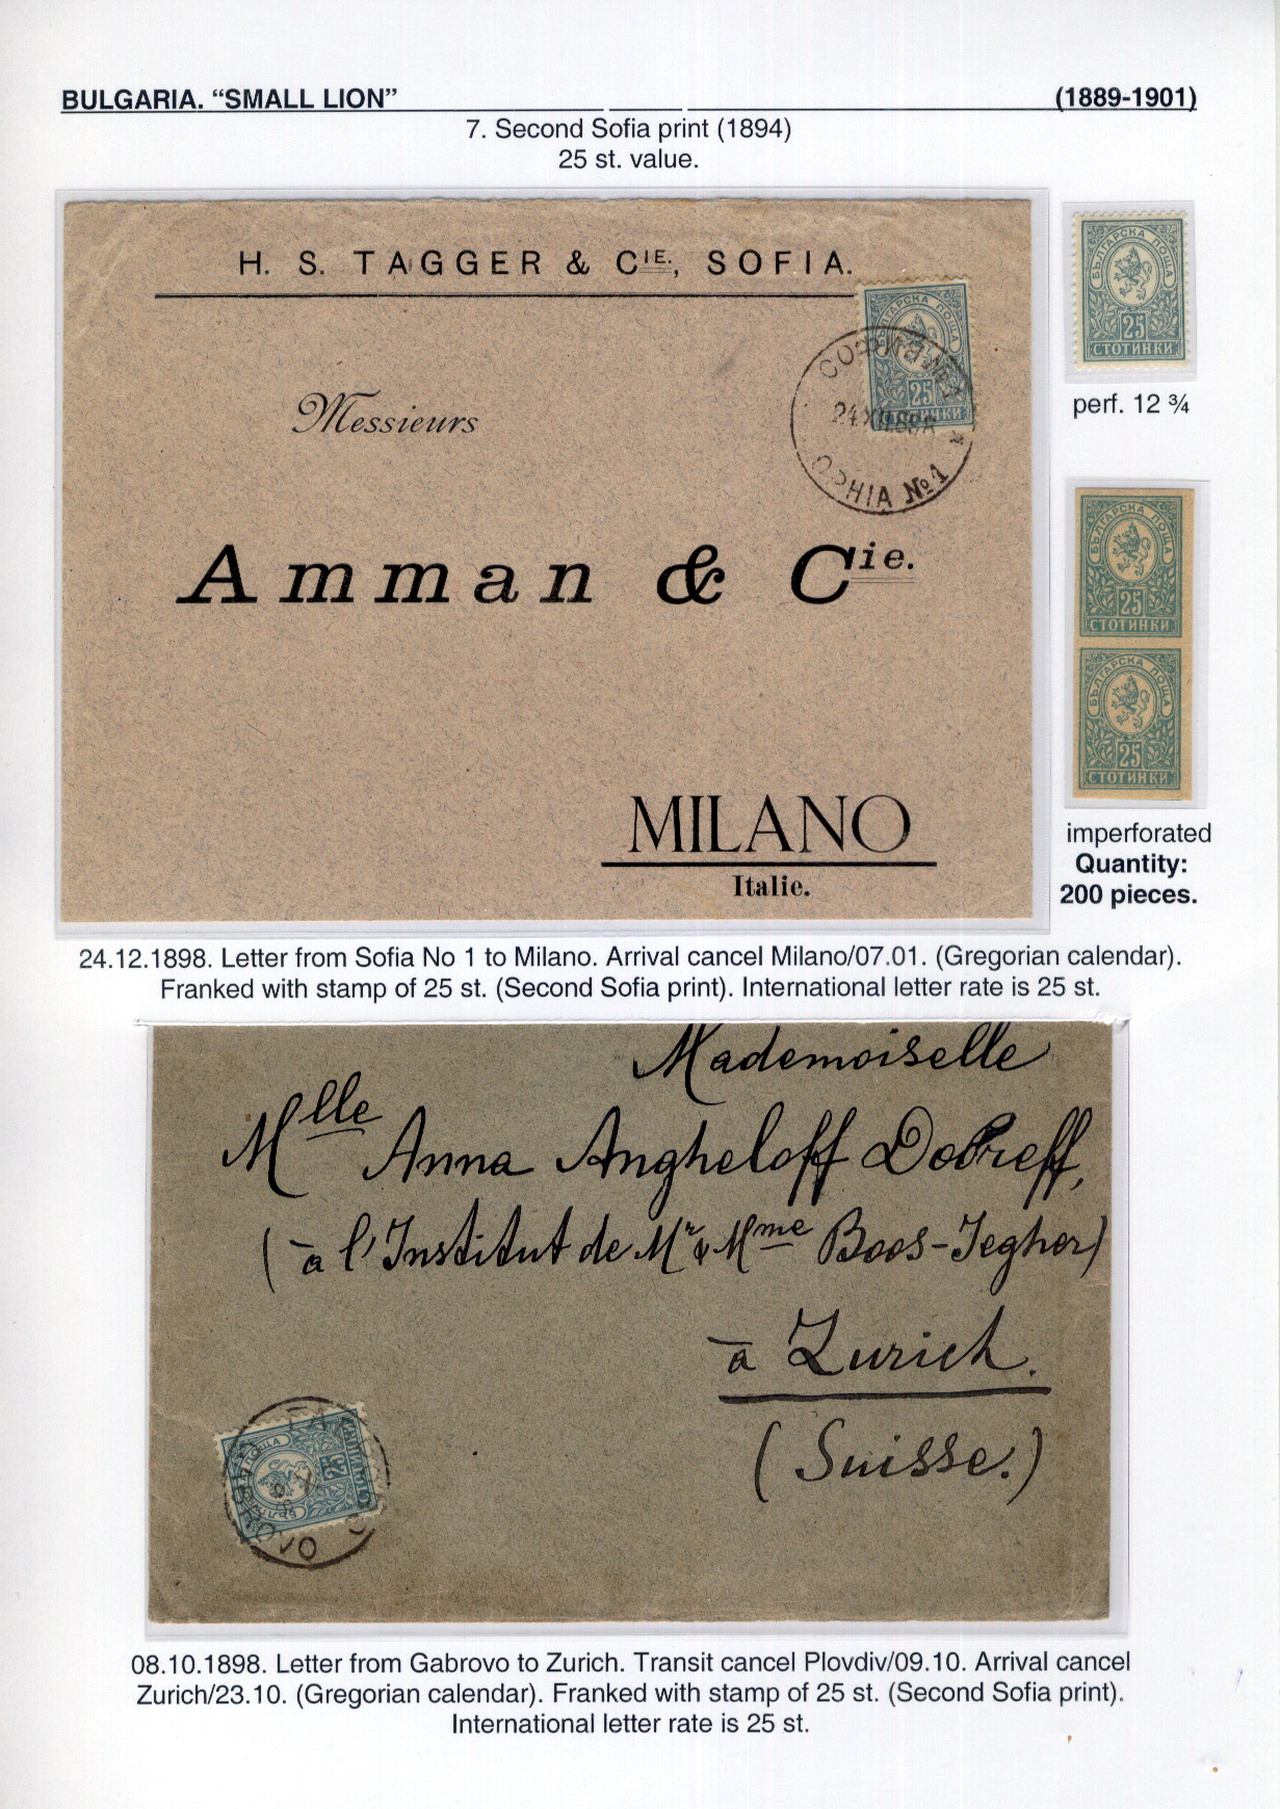 BULGARIA. “SMALL LION” (1889-1901)
7. Second Sofia print (1894)
25 st. value.
H. S. TAGGER & CIE., SOFIA.
БЪЛГАРСКА ПОЩА
25
СТОТИНКИ
24 XII.898
СОФИЯ
SOPHIA №1
Messieurs
Amman & Cie.
MILANO
Italie.
БЪЛГАРСКА ПОЩА
25
СТОТИНКИ
perf. 12 ¾
БЪЛГАРСКА ПОЩА
25
СТОТИНКИ
БЪЛГАРСКА ПОЩА
25
СТОТИНКИ
imperforated
Quantity:
200 pieces.
24.12.1898. Letter from Sofia No 1 to Milano. Arrival cancel Milano/07.01. (Gregorian calendar).
Franked with stamp of 25 st. (Second Sofia print). International letter rate is 25 st.
Mademoiselle
Mlle Anna Angheloff Dobreff,
(à l'Institut de Mr & Mme Boos-Jegher)
à Zurich.
(Suisse.)
БЪЛГАРСКА ПОЩА
25
СТОТИНКИ
08.10.1898. Letter from Gabrovo to Zurich. Transit cancel Plovdiv/09.10. Arrival cancel
Zurich/23.10. (Gregorian calendar). Franked with stamp of 25 st. (Second Sofia print).
International letter rate is 25 st.